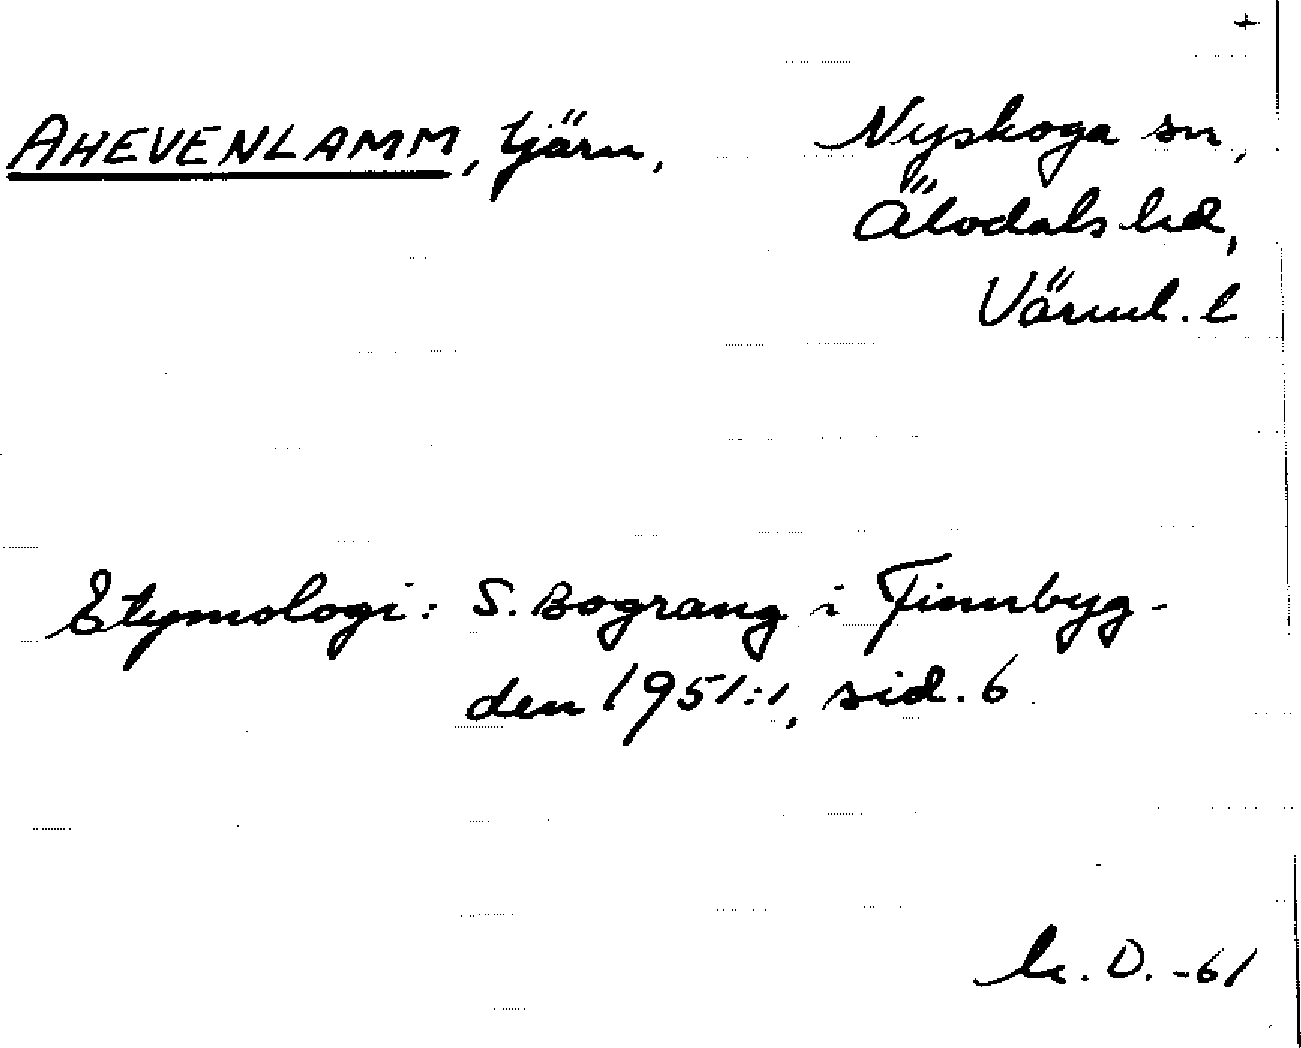 +
AHEVENLAMM, tjärn, Nyskoga sn,
Älvdals hd,
Värml. l
Etymologi: S. Bograng i Finnbyg-
den 1951:1, sid. 6
D. -61